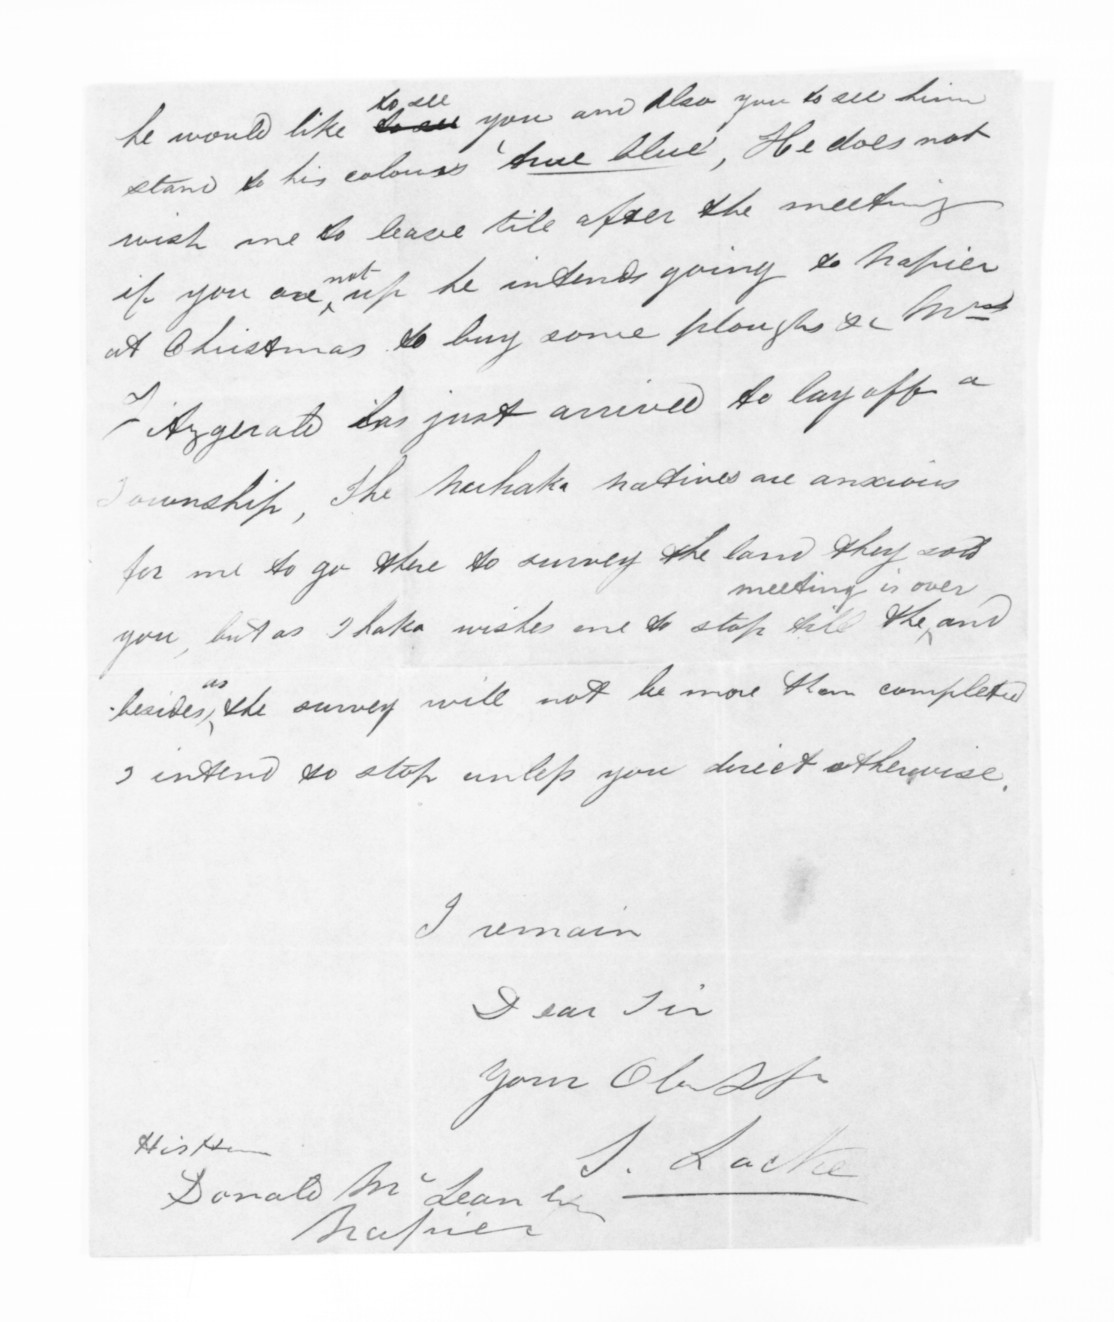 he would like to see to see you and also you to see him
stand to his colours 'true blue', He does not
wish me to leave till after the meeting
if you are not up he intends going to Napier
at Christmas to buy some ploughs &c
Fitzgerald has just arrived to lay off a
Township, The natives are anxious
for me to go there to survey the land they sold
meeting is over
you, but as Ihaka wishes me to stop till the and
besides as the survey will not be more than completed
I intend to stop unless you direct otherwise.
I remain
Dear Sir
Your Obt Sr
S. Locke
His Hon
Donald McLean Esq
Napier